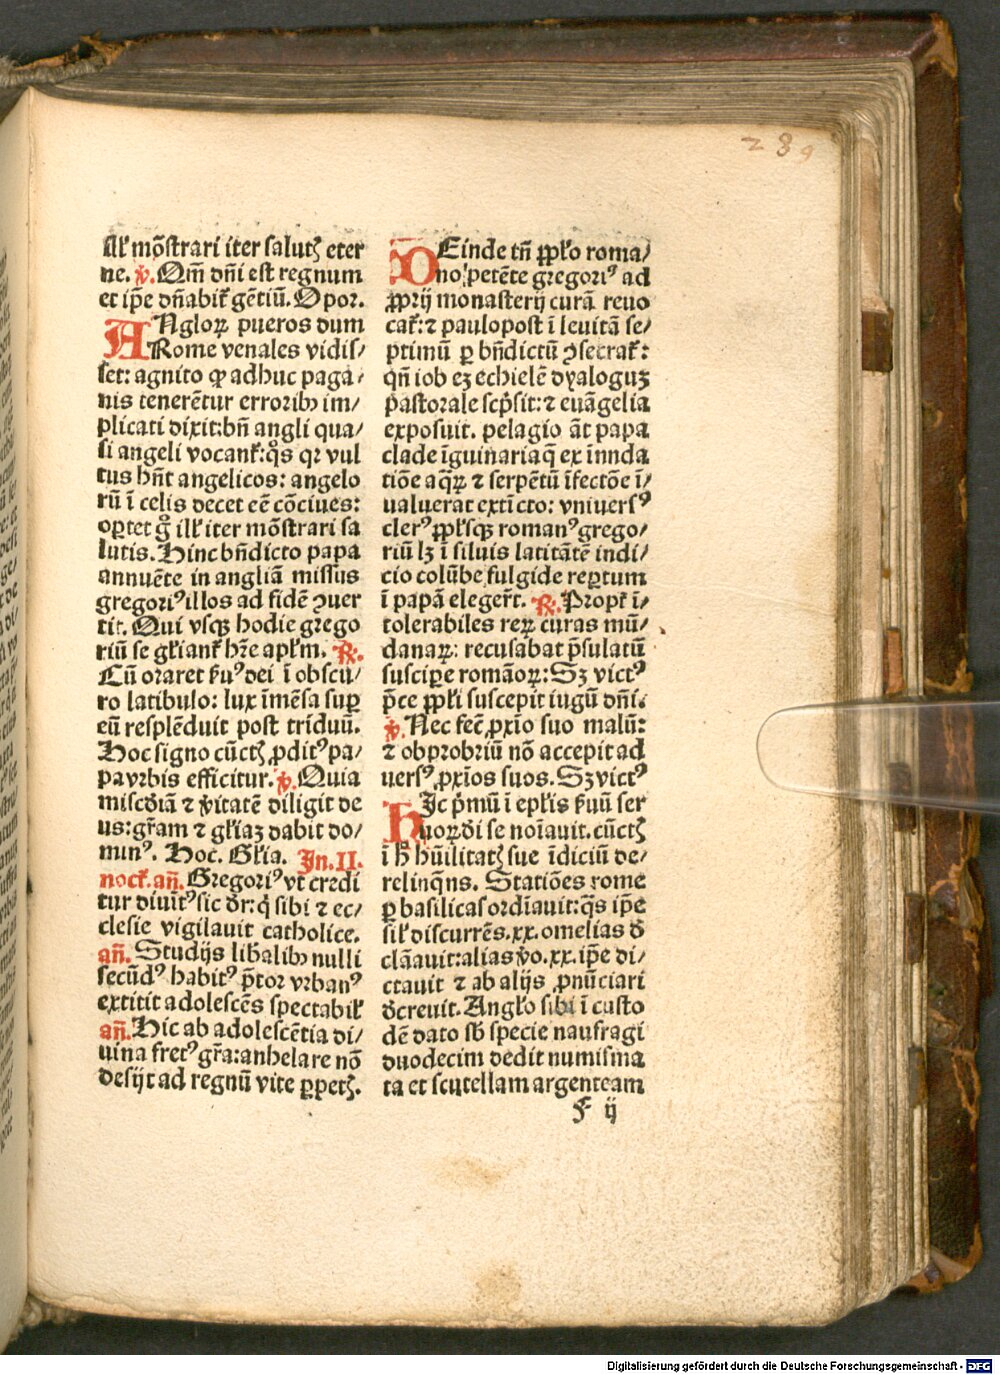 289
illꝭ mōſtrari iter ſalutꝭ eter
ne. ꝟ. Qm̄ dn̄i eſt regnum
et ip̄e dn̄abit᷑ gētiū. Opor.
ANgloꝝ pueros dum
Rome venales vidiſ/
ſet: agnito ꝙ adhuc paga/
nis tenerētur erroribꝰ im/
plicati dixit: bn̄ angli qua/
ſi angeli vocant᷑: q̊s qꝛ vul
tus hn̄t angelicos: angelo
rū ī celis decet eē cōciues:
oꝑtet g̊ illꝭ iter mōſtrari ſa
lutis. Hinc bn̄dicto papa
annuēte in angliā miſſus
gregoriꝰ illos ad fidē ꝯuer
tit. Qui vſqꝫ hodie grego
riū ſe gl̓iant᷑ hr̄e apl̓m. ℟.
Cū oraret ẜuꝰ dei ī obſcu/
ro latibulo: lux īmēſa ſuꝑ
eū reſplēduit poſt triduū.
Hoc ſigno cūctꝭ ꝓditꝰ pa/
pa vrbis efficitur. ꝟ. Quia
miſcd̓iā ⁊ v̓itatē diligit de
us: gr̄am ⁊ gl̓iaꝫ dabit do/
minꝰ. Hoc. Gl̓ia. In. II.
noct᷑. an̄. Gregoriꝰ vt credi
tur diuīꝰ ſic dr̄: q̇ ſibi ⁊ ec/
cleſie vigilauit catholice.
an̄. Studijs lib̓alibꝰ nulli
ſecūdꝰ habitꝰ p̄tor vrbanꝰ
extitit adoleſcēs ſpectabil̓
an̄. Hic ab adoleſcētia di/
uina fretꝰ gr̄a: anhelare nō
deſijt ad regnū vite ꝑpetꝭ.
DEinde tn̄ ꝓpl̓o roma/
no petēte gregoriꝰ ad
ꝓprij monaſterij curā reuo
cat᷑: ⁊ paulopoſt ī leuitā ſe/
ptimū ꝑ bn̄dictū ꝯſecrat᷑:
qn̄ iob ezechielē dyaloguꝫ
paſtorale ſcp̄ſit: ⁊ euāgelia
expoſuit. pelagio āt papa
clade īguinariaq̄ ex īnnda
tiōe aqꝝ ⁊ ſerpētū īfectōe ī/
ualuerat extīcto: vniuerſꝰ
clerꝰ ppl̓ſqꝫ romanꝰ grego/
riū lꝫ ī ſiluis latitātē indi/
cio colūbe fulgide reꝑtum
ī papā elegerūt. ℟. Propt᷑ ī/
tolerabiles reꝝ curas mū/
danaꝝ: recuſabat p̄ſulatū
ſuſcipe romāoꝝ: Sꝫ victꝰ
p̄ce ppl̓i ſuſcepit iugū dn̄i.
ꝟ. Nec fec̄ ꝓxīo ſuo malū:
⁊ obprobriū nō accepit ad
uerſꝰ ꝓxīos ſuos. Sꝫ victꝰ
HIc p̄mū ī epl̓is ẜuū ſer
uoꝝ dei ſe noīauit. cūctꝭ
ī h̓ hūilitatꝭ ſue īdiciū de/
relinq̄ns. Statiōes rome
ꝑ baſilicas ordīauit: q̄s ip̄e
ſil̓ diſcurrēs. xx. omelias d̓
clāauit: alias v̓o. xx. ip̄e di/
ctauit ⁊ ab alijs ꝓnūciari
d̓creuit. Angl̓o ſibi ī cuſto
dē dato ſb̓ ſpecie naufragi
duodecim dedit numiſma
ta et ſcutellam argenteam
f ij
Digitalisierung gefördert durch die Deutsche Forschungsgemeinschaft - DFG